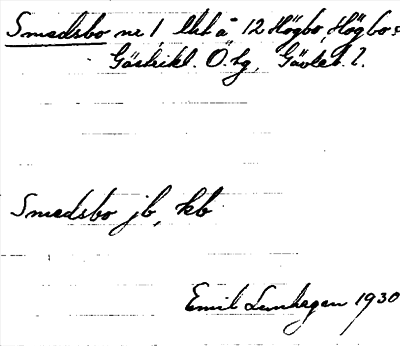 Smedsbo nr 1, litt a 12 Högbo, Högbo s:
Gästrikl. Ö. tg, Gävleb. l.
Smedsbo jb, kb
Emil Lenhagen 1930